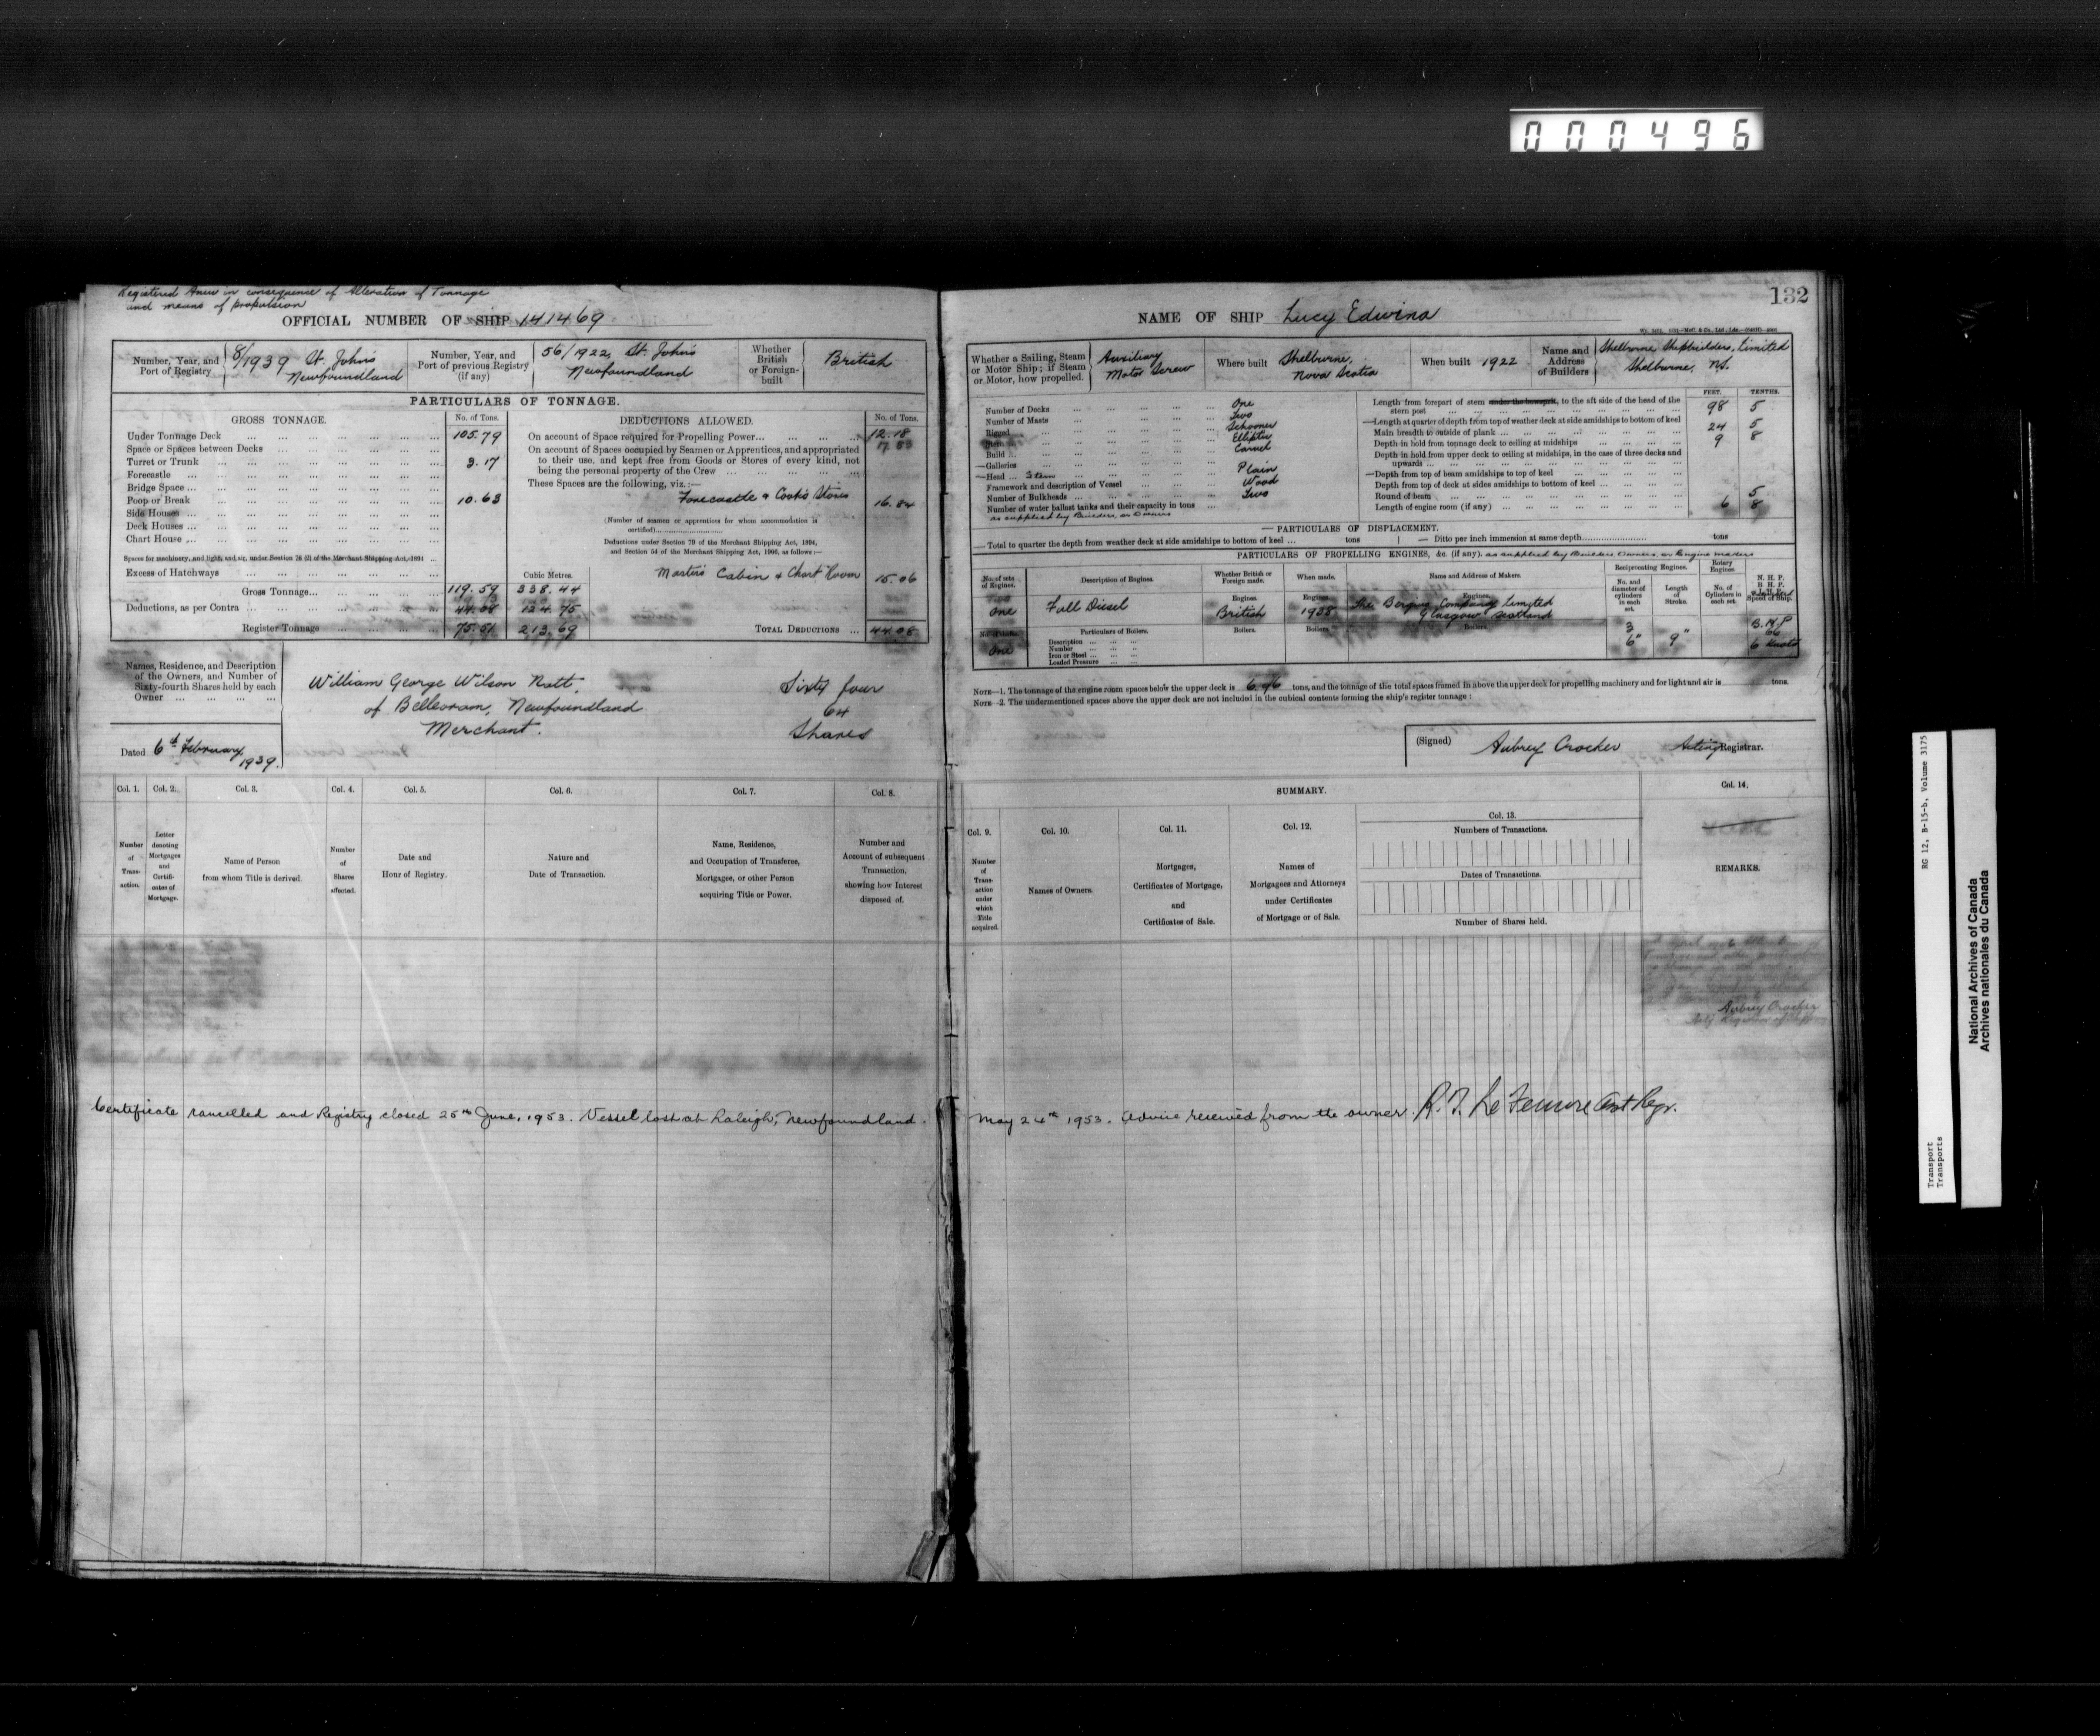 000496
Registered Anew in consequence of Alteration of Tonnage
and means of propulsion
OFFICIAL NUMBER OF SHIP 141469
Number, Year, and Port of Registry
8/1939 St. John's Newfoundland
Number, Year, and Port of previous Registry (if any)
56/1922, St. John's Newfoundland
Whether British or Foreign-built
British
PARTICULARS OF TONNAGE.
GROSS TONNAGE.
No. of Tons.
Under Tonnage Deck 105.79
Space or Spaces between Decks
Turret or Trunk 3.17
Forecastle
Bridge Space
Poop or Break 10.63
Side Houses
Deck Houses
Chart House
Spaces for machinery, and light, and air, under Section 78 (2) of the Merchant Shipping Act, 1894
Excess of Hatchways
Cubic Metres.
Gross Tonnage 119.59 338.44
Deductions, as per Contra 44.08 124.75
Register Tonnage 75.51 213.69
DEDUCTIONS ALLOWED.
No. of Tons.
On account of Space required for Propelling Power 12.18
On account of Spaces occupied by Seamen or Apprentices, and appropriated
to their use, and kept free from Goods or Stores of every kind, not
being the personal property of the Crew
These Spaces are the following, viz.:—
Forecastle & Cook's Stores 16.84
(Number of seamen or apprentices for whom accommodation is
certified)
Deductions under Section 79 of the Merchant Shipping Act, 1894,
and Section 54 of the Merchant Shipping Act, 1906, as follows:—
Master's Cabin & Chart Room 15.06
TOTAL DEDUCTIONS 44.08
Names, Residence, and Description
of the Owners, and Number of
Sixty-fourth Shares held by each
Owner
William George Wilson
of Belleoram, Newfoundland
Merchant.
Sixty four
64
Shares
Dated 6th February, 1939.
Col. 1. Number of Transaction.
Col. 2. Letter denoting Mortgages and Certificates of Mortgage.
Col. 3. Name of Person from whom Title is derived.
Col. 4. Number of Shares affected.
Col. 5. Date and Hour of Registry.
Col. 6. Nature and Date of Transaction.
Col. 7. Name, Residence, and Occupation of Transferee, Mortgagee, or other Person acquiring Title or Power.
Col. 8. Number and Account of subsequent Transaction, showing how Interest disposed of.
132
NAME OF SHIP Lucy Edwina
Whether a Sailing, Steam or Motor Ship; if Steam or Motor, how propelled.
Auxiliary Motor Screw
Where built
Shelburne, Nova Scotia
When built 1922
Name and Address of Builders
Shelburne Shipbuilders, Limited
Shelburne, N.S.
Number of Decks One
Number of Masts Two
Rigged Schooner
Stern Elliptic
Build Carvel
Galleries
Head Stem Plain
Framework and description of Vessel Wood
Number of Bulkheads Two
Number of water ballast tanks and their capacity in tons
as supplied by Builders, or Owners
FEET. TENTHS.
Length from forepart of stem under the bowsprit, to the aft side of the head of the
stern post 98 5
Length at quarter of depth from top of weather deck at side amidships to bottom of keel
Main breadth to outside of plank 24 5
Depth in hold from tonnage deck to ceiling at midships 9 8
Depth in hold from upper deck to ceiling at midships, in the case of three decks and
upwards
Depth from top of beam amidships to top of keel
Depth from top of deck at sides amidships to bottom of keel
Round of beam 5
Length of engine room (if any) 6 8
PARTICULARS OF DISPLACEMENT.
Total to quarter the depth from weather deck at side amidships to bottom of keel tons
Ditto per inch immersion at same depth tons
PARTICULARS OF PROPELLING ENGINES, &c. (if any). as supplied by Builders, Owners, or Engine makers
No. of sets of Engines.
One
Description of Engines.
Full Diesel
Whether British or Foreign made.
Engines.
British
When made.
Engines.
1938
Name and Address of Makers.
Engines.
The Bergius Company Limited
Glasgow Scotland
Reciprocating Engines.
No. and diameter of cylinders in each set.
3
6"
Length of Stroke.
9"
Rotary Engines
No. of Cylinders in each set.
N.H.P.
B.H.P.
Speed of Ship.
B.H.P
66
6 knots
One
Particulars of Boilers.
Description
Number
Iron or Steel
Loaded Pressure
Boilers.
Boilers.
Boilers.
NOTE—1. The tonnage of the engine room spaces below the upper deck is tons, and the tonnage of the total spaces framed in above the upper deck for propelling machinery and for light and air is tons.
NOTE—2. The undermentioned spaces above the upper deck are not included in the cubical contents forming the ship's register tonnage:
(Signed) Aubrey Crocker Acting Registrar.
SUMMARY.
Col. 9. Number of Transaction under which Title acquired.
Col. 10. Names of Owners.
Col. 11. Mortgages, Certificates of Mortgage, and Certificates of Sale.
Col. 12. Names of Mortgagees and Attorneys under Certificates of Mortgage or of Sale.
Col. 13.
Numbers of Transactions.
Dates of Transactions.
Number of Shares held.
Col. 14.
REMARKS.
Aubrey Crocker
Certificate cancelled and Registry closed 25th June, 1953. Vessel lost at Raleigh, Newfoundland. May 24th 1953. Advice received from the owner. Asst Regr.
RG 12, B-15-b, Volume 3175
Transport
Transports
National Archives of Canada
Archives nationales du Canada